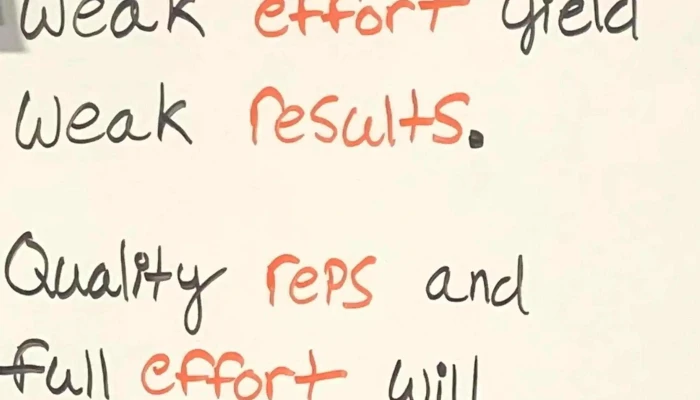 Weak effort yield
Weak results.
Quality reps and
full effort will